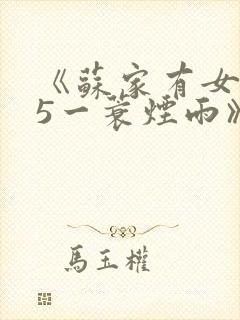 《蘇家有女
5一蓑煙雨》
馬玉權